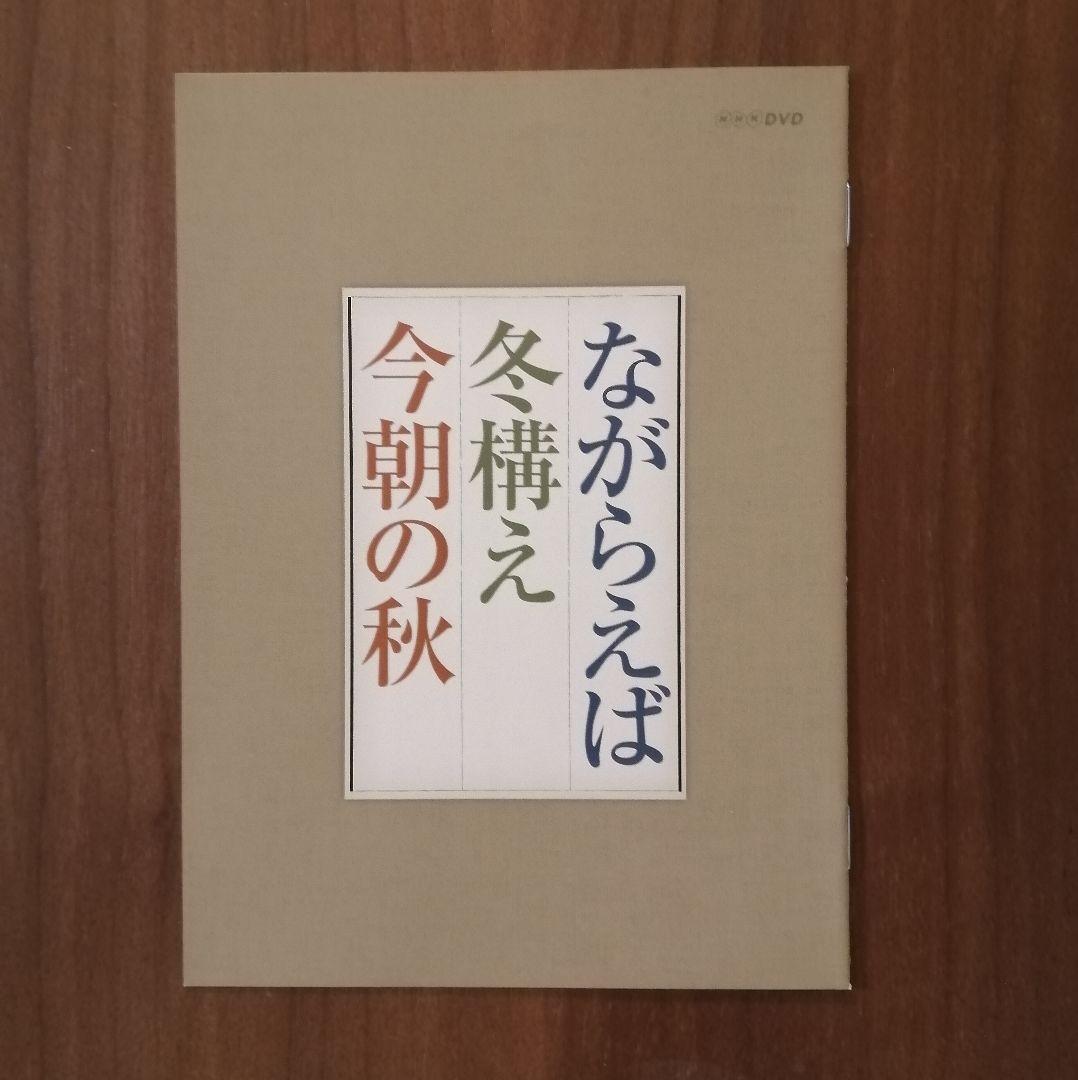 NHK DVD
ながらえば
冬構え
今朝の秋